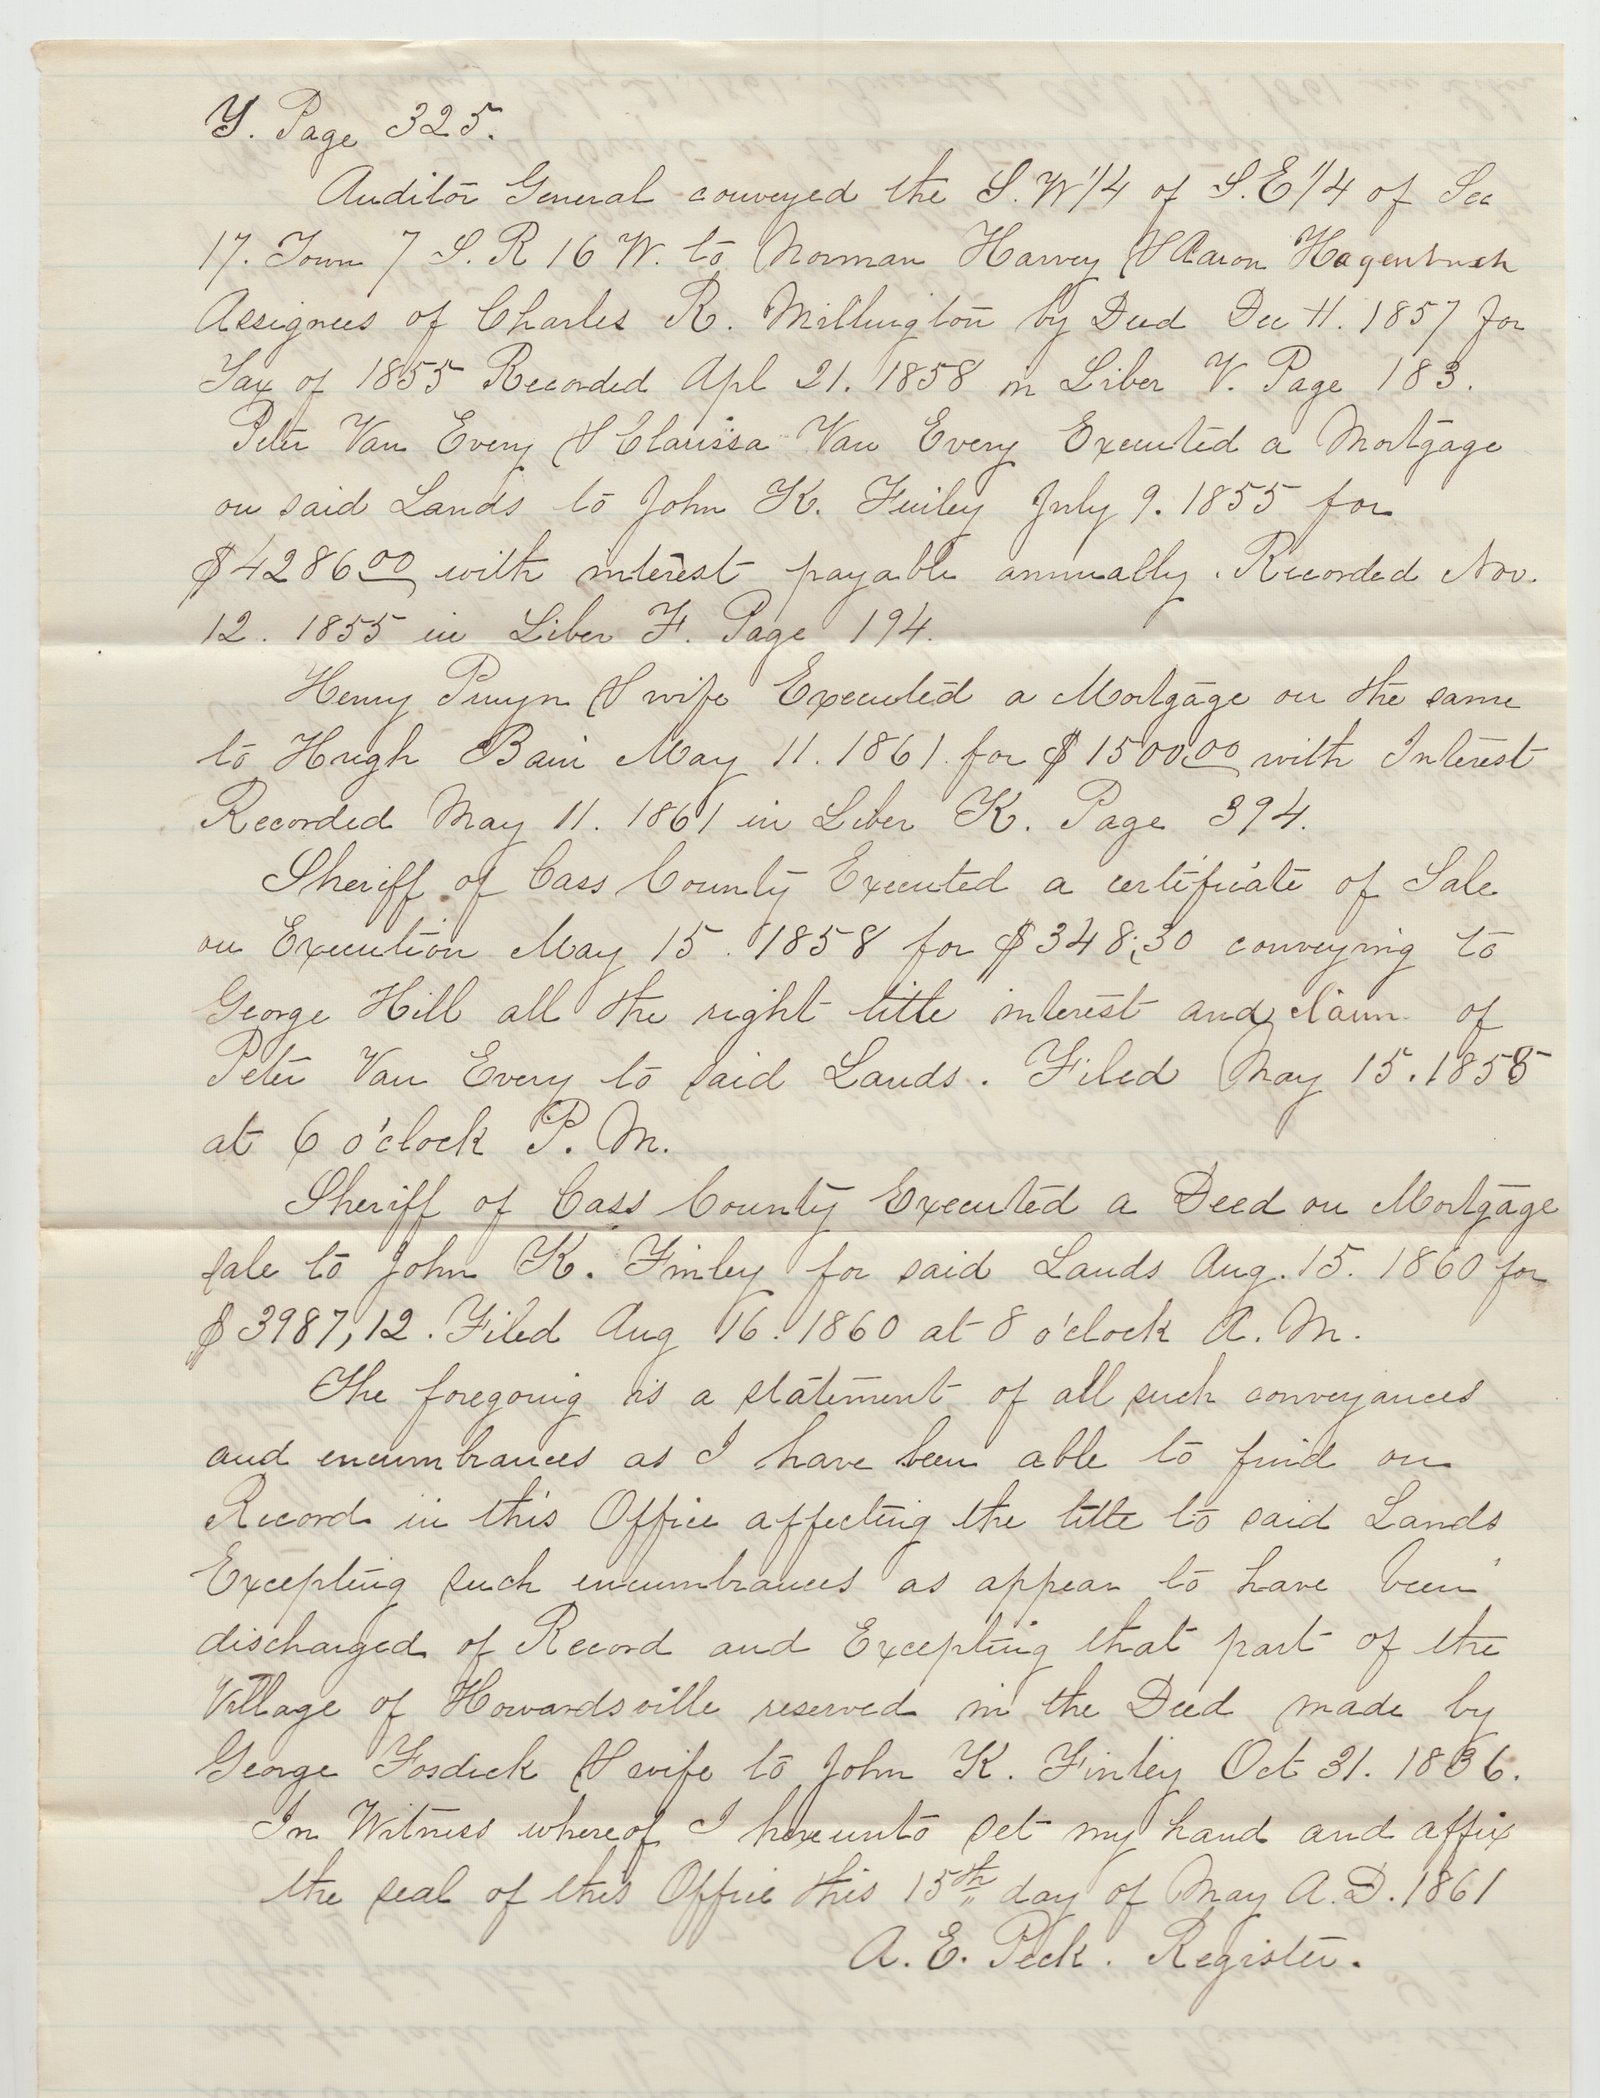 Y. Page 325.
Auditor General conveyed the S.W 1/4 of S.E 1/4 of Sec
17. Town 7 S. R 16 W. to Norman Harvey & Aaron Hagenbush
Assignees of Charles R. Millington by Deed Dec 11. 1857 for
Tax of 1855 Recorded Apl 21. 1858 in Liber V. Page 183.
Peter Van Every & Clarissa Van Every Executed a Mortgage
on said Lands to John K. Finley July 9. 1855 for
$4286.00 with interest payable annually. Recorded Nov.
12. 1855 in Liber F. Page 194.
Henry & wife Executed a Mortgage on the same
to Hugh Bain May 11. 1861 for $1500.00 with Interest
Recorded May 11. 1861 in Liber K. Page 394.
Sheriff of Cass County Executed a certificate of Sale
on Execution May 15. 1858 for $348,30 conveying to
George Hill all the right title interest and claim of
Peter Van Every to said Lands. Filed May 15. 1858
at 6 o'clock P. M.
Sheriff of Cass County Executed a Deed on Mortgage
sale to John K. Finley for said Lands Aug. 15. 1860 for
$3987,12. Filed Aug 16. 1860 at 8 o'clock A. M.
The foregoing is a statement of all such conveyances
and encumbrances as I have been able to find on
Record in this Office affecting the title to said Lands
Excepting such encumbrances as appear to have been
discharged of Record and Excepting that part of the
Village of Howardsville reserved in the Deed made by
George Fosdick & wife to John K. Finley Oct 31. 1836.
In Witness whereof I hereunto set my hand and affix
the seal of this Office this 15th day of May A.D. 1861
A. E. Peck. Register.